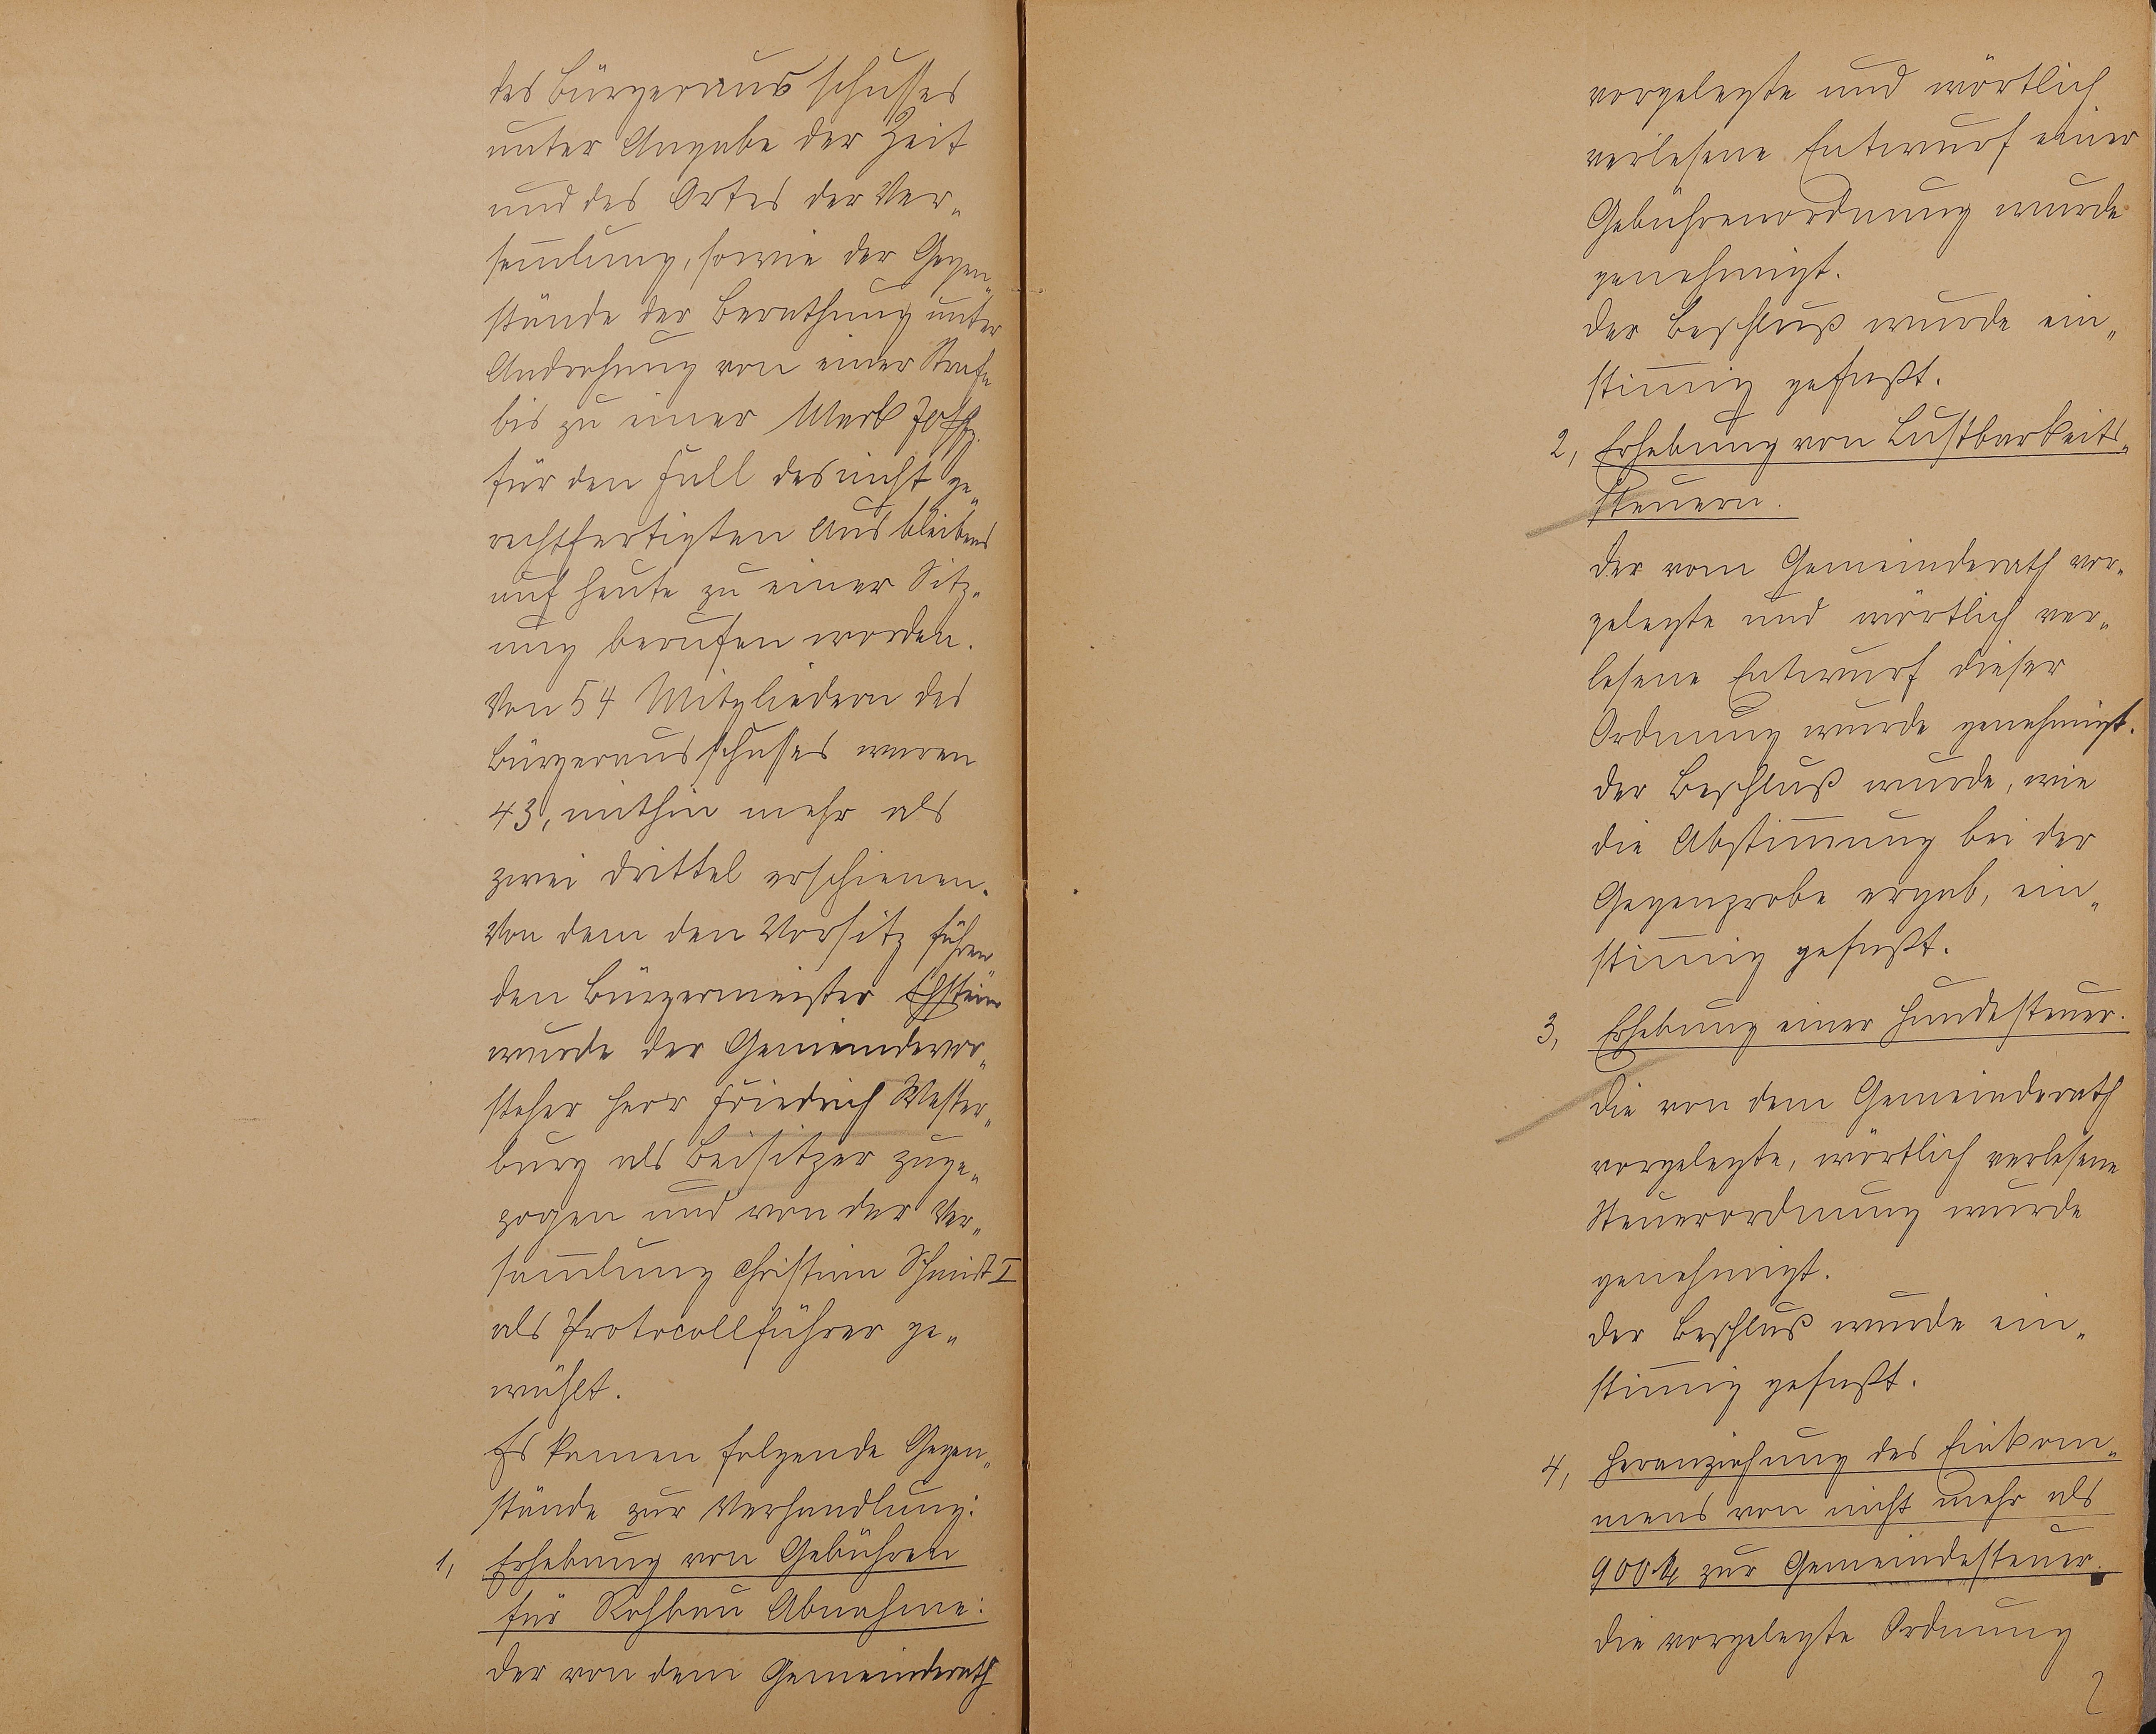 des Bürgerausschusses
unter Angabe der Zeit
und des Ortes der Ver„
sam̄lung, sowie der Gegen„
stände der Berathung unter
Androhung von einer Strafe
bis zu einer Mark
für den Fall des nicht ge„
rechtfertigten Ausbleibens
auf heute zu einer Sitz„
ung berufen worden.
Von 54 Mitgliedern des
Bürgerausschusses waren
43, mithin mehr als
zwei drittel erschienen.
Von dem den Vorsitz führen„
den Bürgermeister
wurde der Gemeindevor„
steher Herr Friedrich Wester„
burg als Beisitzer zuge„
zogen und von der Ver„
sam̄lung Christian Schmidt I
als Protocollführer ge„
wählt.
Es kamen folgende Gegen„
stände zur Verhandlung:
1, Erhebung von Gebühren
für Rohbau Abnahme:
Der von dem Gemeinderath
vorgelegte und wörtlich
verlesene Entwurf einer
Gebührenordnung wurde
genehmigt.
Der Beschluß wurde ein„
stim̄ig gefaßt.
2, Erhebung von Lustbarkeits„
steuern.
Der vom Gemeinderath vor„
gelegte und wörtlich ver„
lesene Entwurf dieser
Ordnung wurde genehmigt.
Der Beschluß wurde, wie
die Abstim̄ung bei der
Gegenprobe ergab, ein„
stim̄ig gefaßt.
3, Erhebung einer Hundesteuer.
Die von dem Gemeinderath
vorgelegte, wörtlich verlesene
Steuerordnung wurde
genehmigt.
Der Beschluß wurde ein„
stim̄ig gefaßt.
4, Heranziehung des Einkom„
mens von nicht mehr als
900 M zur Gemeindesteuer.
Die vorgelegte Ordnung
2